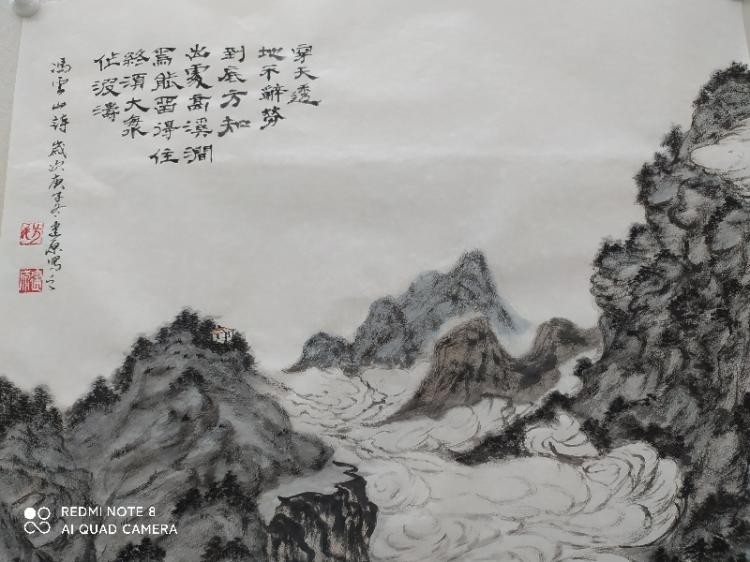 穿天透
地不辭勞
到底方知
出處高溪澗
焉能留得住
終須大海
作波濤
馮雲山詩歲次庚子冬建原寫之
REDMI NOTE 8
AI QUAD CAMERA